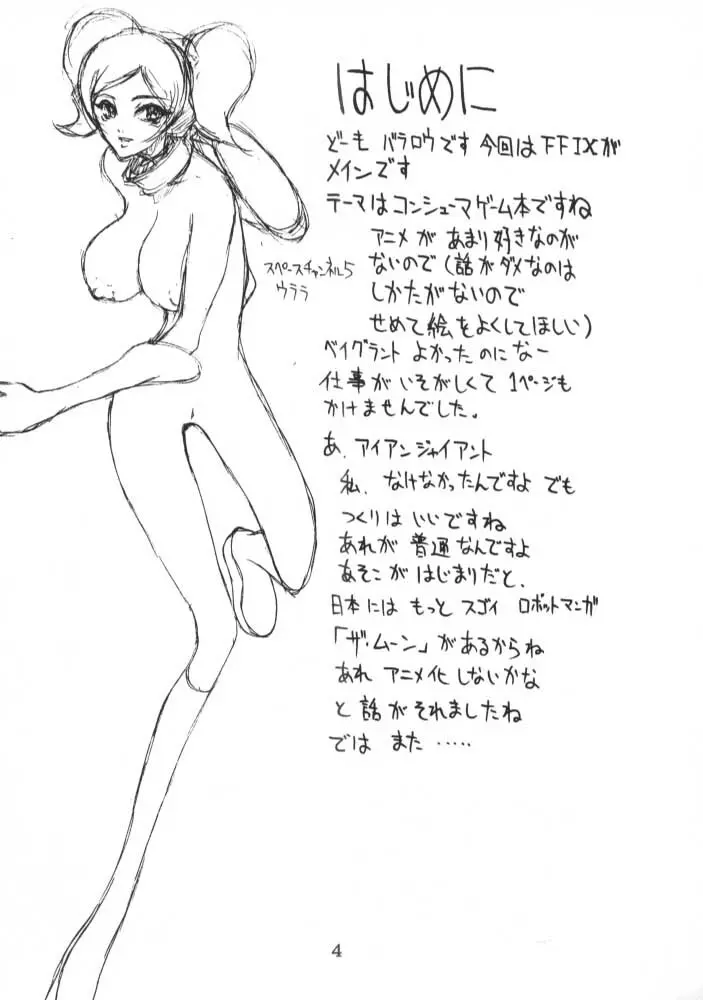 はじめに
どーも バラロウです 今回はFFIXが
メインです
テーマはコンシューマゲーム本ですね
アニメが あまり好きなのが
ないので(話がダメなのは
しかたがないので
せめて絵をよくしてほしい)
スペースチャンネル5
ウララ
ベイグラント よかったのになー
仕事がいそがしくて 1ページも
かけませんでした。
あ、アイアンジャイアント
私、なけなかったんですよ でも
つくりはいいですね
あれが 普通なんですよ
あそこが はじまりだと、
日本には もっと スゴイ ロボットマンガ
「ザ・ムーン」があるからね
あれ アニメ化しないかな
と 話がそれましたね
では また ‥‥‥
4